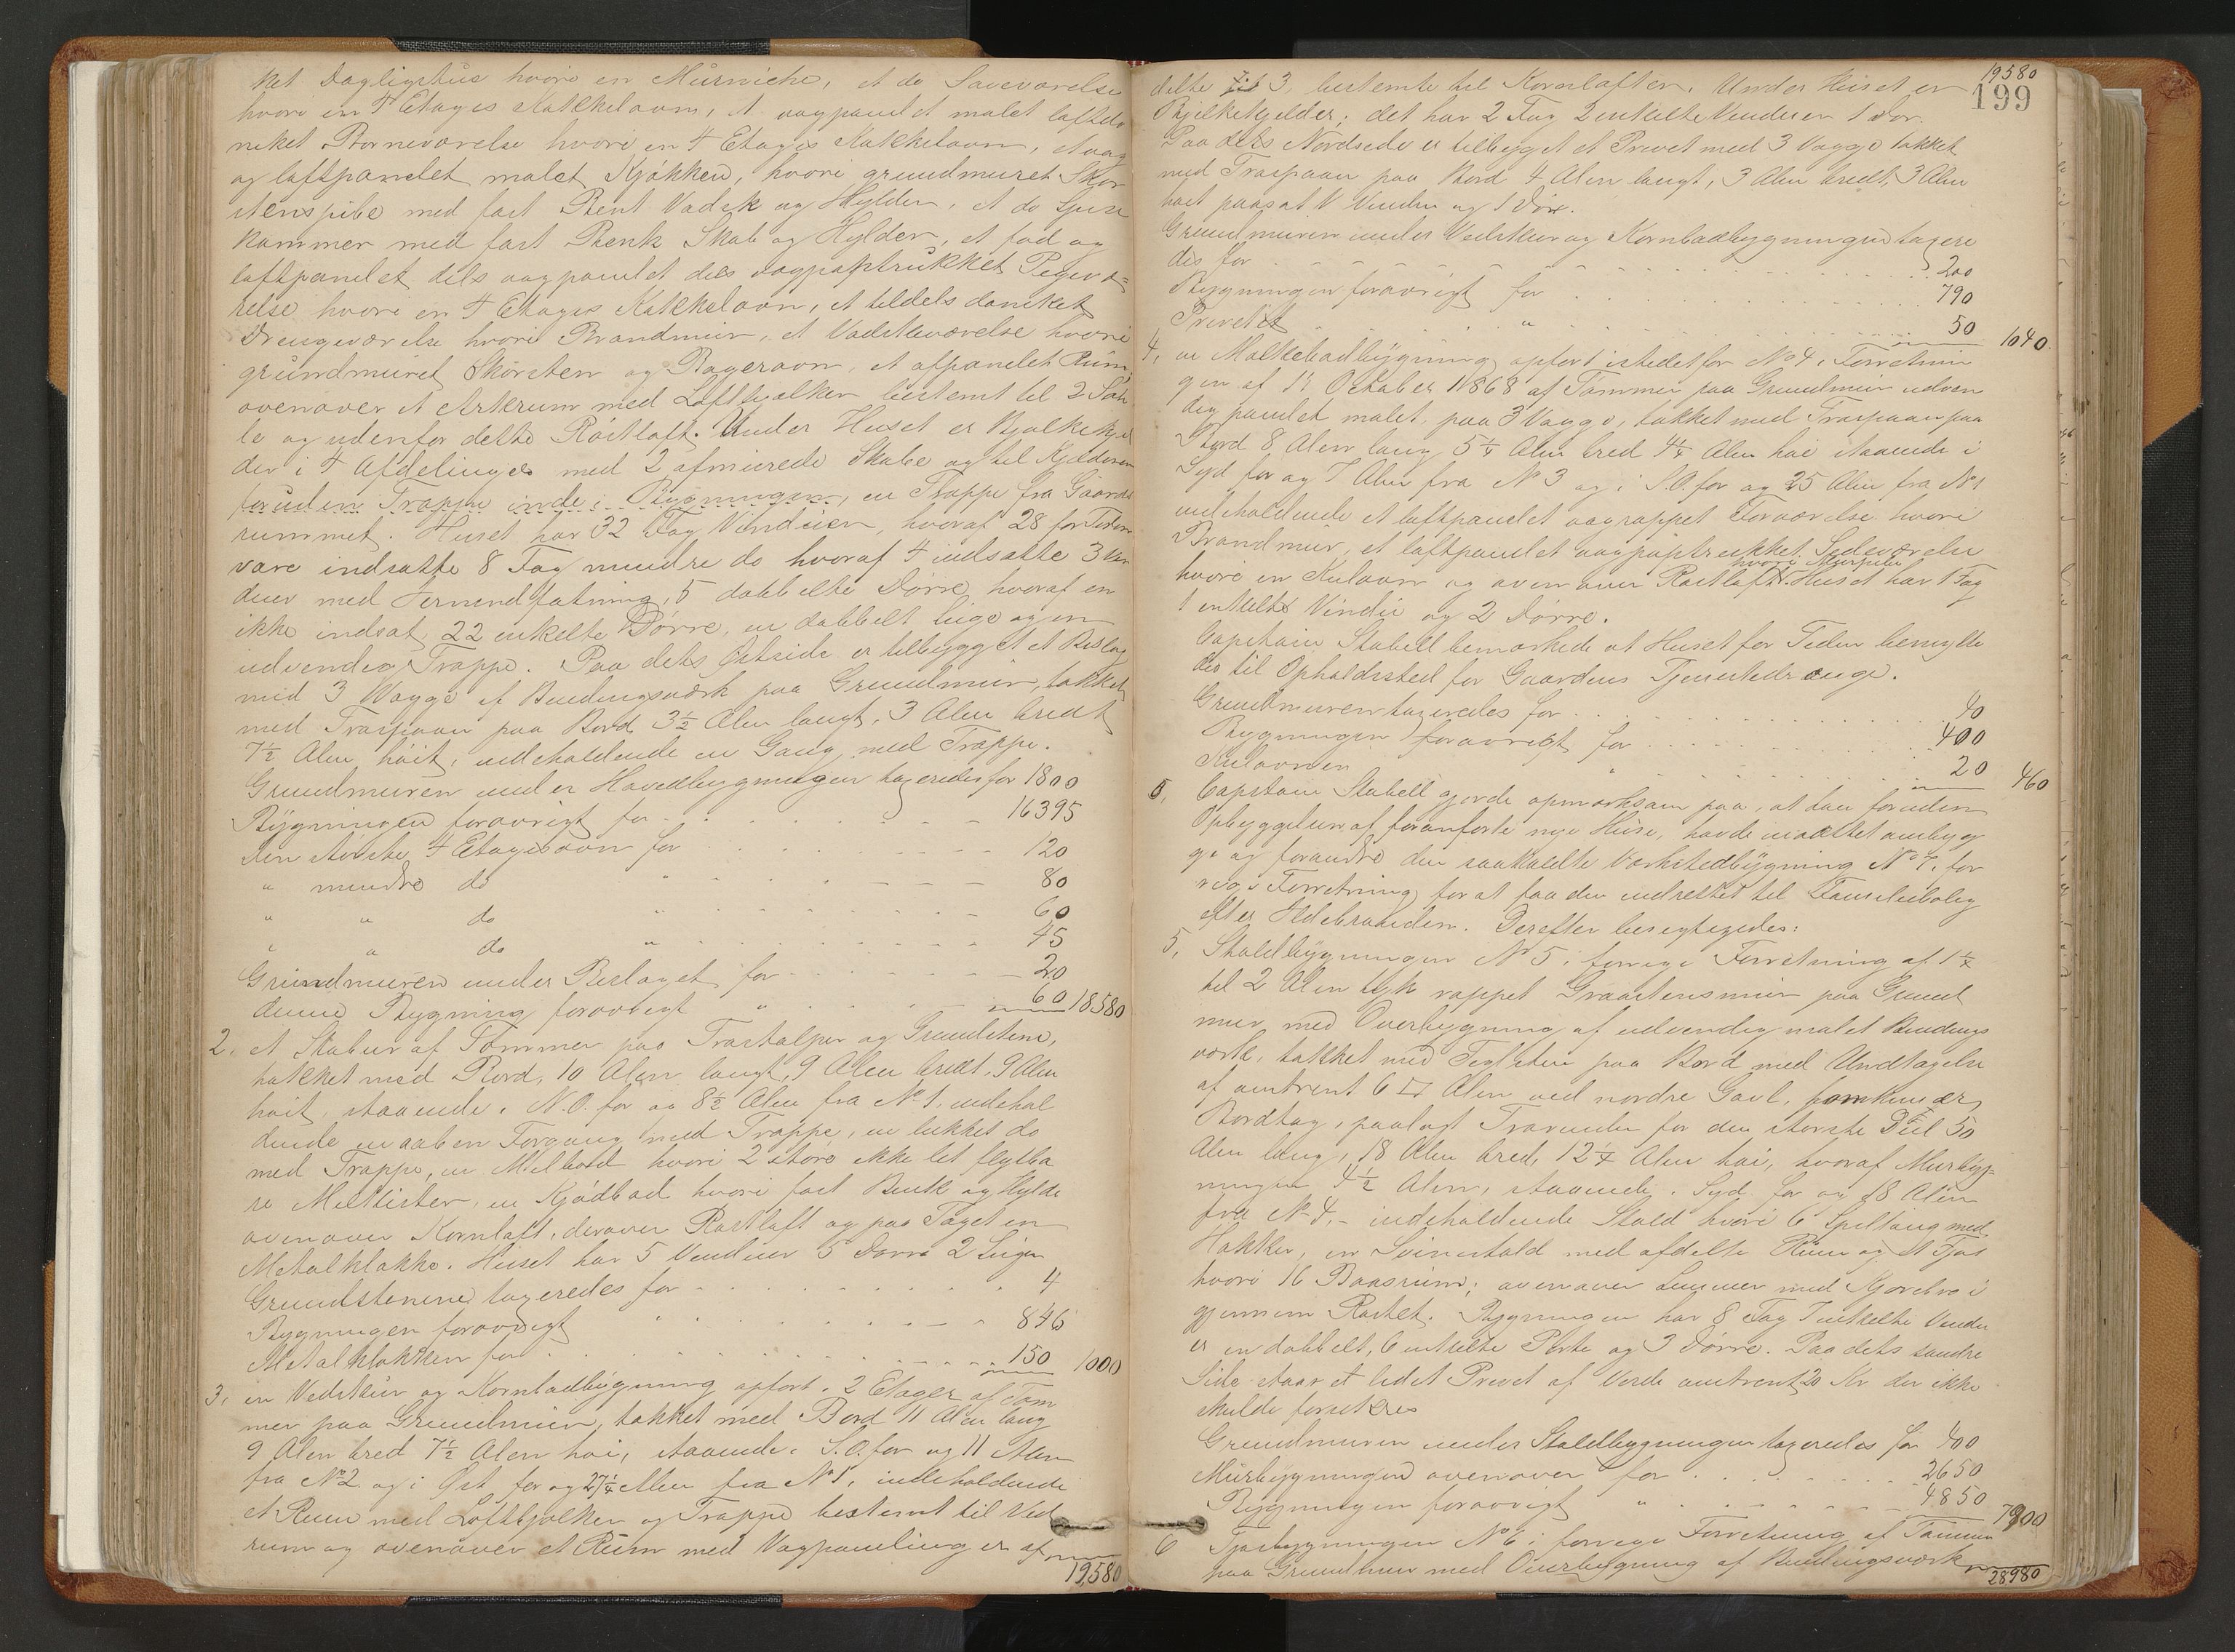 ket Dagligstue hvori en Murniche, et do Soveværelse
hvori en 4 Etages Kakkelovn, et vægpanelet malet loftdo
neket Børneværelse hvori en 4 Etages Kakkelovn, et væg
og loftpanelet malet Kjøkken, hvori grundmuret Skor
stenspibe med fast Bent Vadsk og Hylder, et do Spise
kammer med fast Benk Skab og Hylder, et fad og
loftpanelet dels vægpanelet dels vægpaptrukket Pigevæ=
relse hvori en 4 Etages Kakkelovn, et tildels donicket
Drengeværelse hvori Brandmur, et Vadskeværelse hvori
grundmuret Skorsten og Bagerovn, et afpanelet Rum,
ovenover et Arkrum med Loftbjælker bestemt til 2 Sæk
le og udenfor dette Røstloft. Under Huset er Bjælkekjel
der i 4 Afdelinger med 2 afmurede Skabe og til Kjelderen
foruden Trappe inde i Bygningen, en Trappe fra Gaards
rummet. Huset har 32 Fag Vinduer, hvoraf 28 for Tiden
vare indsatte 8 Fag mindre do hvoraf 4 indsatte 3 Vin
duer med Jernindfatning, 5 dobbelte Dørre, hvoraf en
ikke indsat, 22 enkelte Dørre, en dobbelt Luge og en
udvendig Trappe. Paa dets Østside er tilbygget et Bislag
med 3 Vægge af Bindingsværk paa Grundmur, tækket
med Træspaan paa Bord 3½ Alen langt, 3 Alen bredt
7½ Alen høit, indeholdende en Gang med Trappe.
Grundmuren under Hovedbygningen taxeredes for 1800
Bygningen forøvrigt for 16395
den største 4 Etagesovn for 120
" mindre do " 80
" " do " 60
" " do " 45
Grundmuren under Bislaget for 20
denne Bygning forøvrigt " 60 18580
2. et Stabur af Tømmer paa Træstolper og Grundstene,
tækket med Bord, 10 Alen langt, 9 Alen bredt, 9 Alen
høit, staaende i N.O. for og 8½ Alen fra No 1, indehol
dende en aaben Forgang med Trappe, en lukket do
med Trappe, en Melbod hvori 2 store ikke let flyttba
re Melkister, en Kjødbod hvori fast Benk og Hylde
ovenover Kornloft, derover Røstloft og paa Taget en
Metalklokke. Huset har 5 Vinduer 5 Dørre 2 Luger
Grundstenene taxeredes for 4
Bygningen forøvrigt " 846
Metalklokken for 150 1000
3. en Vedskur og Kornladbygning opført i 2 Etager af Tøm
mer paa Grundmur, tækket med Bord 11 Alen lang
9 Alen bred 7½ Alen høi, staaende i S.O. for og 11 Alen
fra No 2 og i Øst for og 27¼ Alen fra No 1, indeholdende
et Rum med Loftbjælker og Trappe bestemt til Ved
rum og ovenover et Rum med Vægpaneling er af
19,580
19580
199
delte til 3, bestemte til Kornlofter. Under Huset er
Bjelkekjelder; det har 2 Fag 2 enkelte Vinduer 1 Dør.
Paa dets Nordside er tilbygget et Privet med 3 Vægge tækket
med Træspaan paa Bord 4 Alen langt, 3 Alen bredt, 3 Alen
høit paasat 1 Vindu og 1 Dør.
Grundmuren under Vedskur og Kornladbygningen taxere
des for 200
Bygningen forøvrigt for 790
Privetet " 50 1040
4. en Melkebodbygning opført istedetfor No 4 i Forretnin
gen af 14 October 1868 af Tømmer paa Grundmur udven
dig panelet malet paa 3 Vægge, tækket med Træspaan paa
Bord 8 Alen lang 5¼ Alen bred 4¼ Alen høi staaende i
Syd for og 7 Alen fra No 3 og i S.O. for og 25 Alen fra No 1
indeholdende et loftpanelet vægrappet Forværelse hvori
Brandmur, et loftpanelet vægpaptrukket Sideværelse
hvori Murpibe
hvori en Kulovn og ovenover Røstloft. Huset har 1 Fag
1 enkelte Vindu og 2 Dørre.
Capitain Stabell bemærkede at Huset for Tiden benytte
des til Opholdssted for Gaardens Tjenestedrenge.
Grundmuren taxeredes for 40
Bygningen forøvrigt for 400
Kulovnen " 20 460
6. Capitain Stabell gjorde opmærksom paa, at han foruden
Opbyggelsen af foranførte nye Huse, havde maattet ombyg
ge og forandre den saakaldte Værkstedbygning No 7. for
rige Forretning for at faa den indrettet til Familiebolig
efter Ildebranden. Derefter besigtigedes:
5. Staldbygningen No 5 i forrige Forretning af 1¼
til 2 Alen tyk rappet Graastensmur paa Grund
mur med Overbygning af udvendig malet Bindings
værk, tækket med Teglsten paa Bord med Undtagelse
af omtrent 6 □ Alen ved nordre Gavl, som kun er
Bordtag, paalagt Trærender for den største Deel 50
Alen lang, 18 Alen bred, 12¼ Alen høi, hvoraf Murbyg=
ningen 4½ Alen, staaende i Syd for og 18 Alen
fra No 4, indeholdende Stald hvori 6 Spiltoug med
Hækker, en Svinestald med afdelte Rum og et Fjøs
hvori 16 Baasrum; ovenover Lemmer med Kjørebro i
gjennem Røstet. Bygningen har 8 Fag 7 enkelte Vindu
er en dobbelt, 6 enkelte Porte og 3 Dørre. Paa dets søndre
Side staar et lidet Privet af Værdi omtrent 20 Kr der ikke
skulde forsikres
Grundmuren under Staldbygningen taxeredes for 400
Murbygningen ovenover for 2650
Bygningen forøvrigt " 4850 7900
6 Fjøsbygningen No 6 i forrige Forretning af Tømmer
paa Grundmur med Overbygning af Bindingsværk
28980